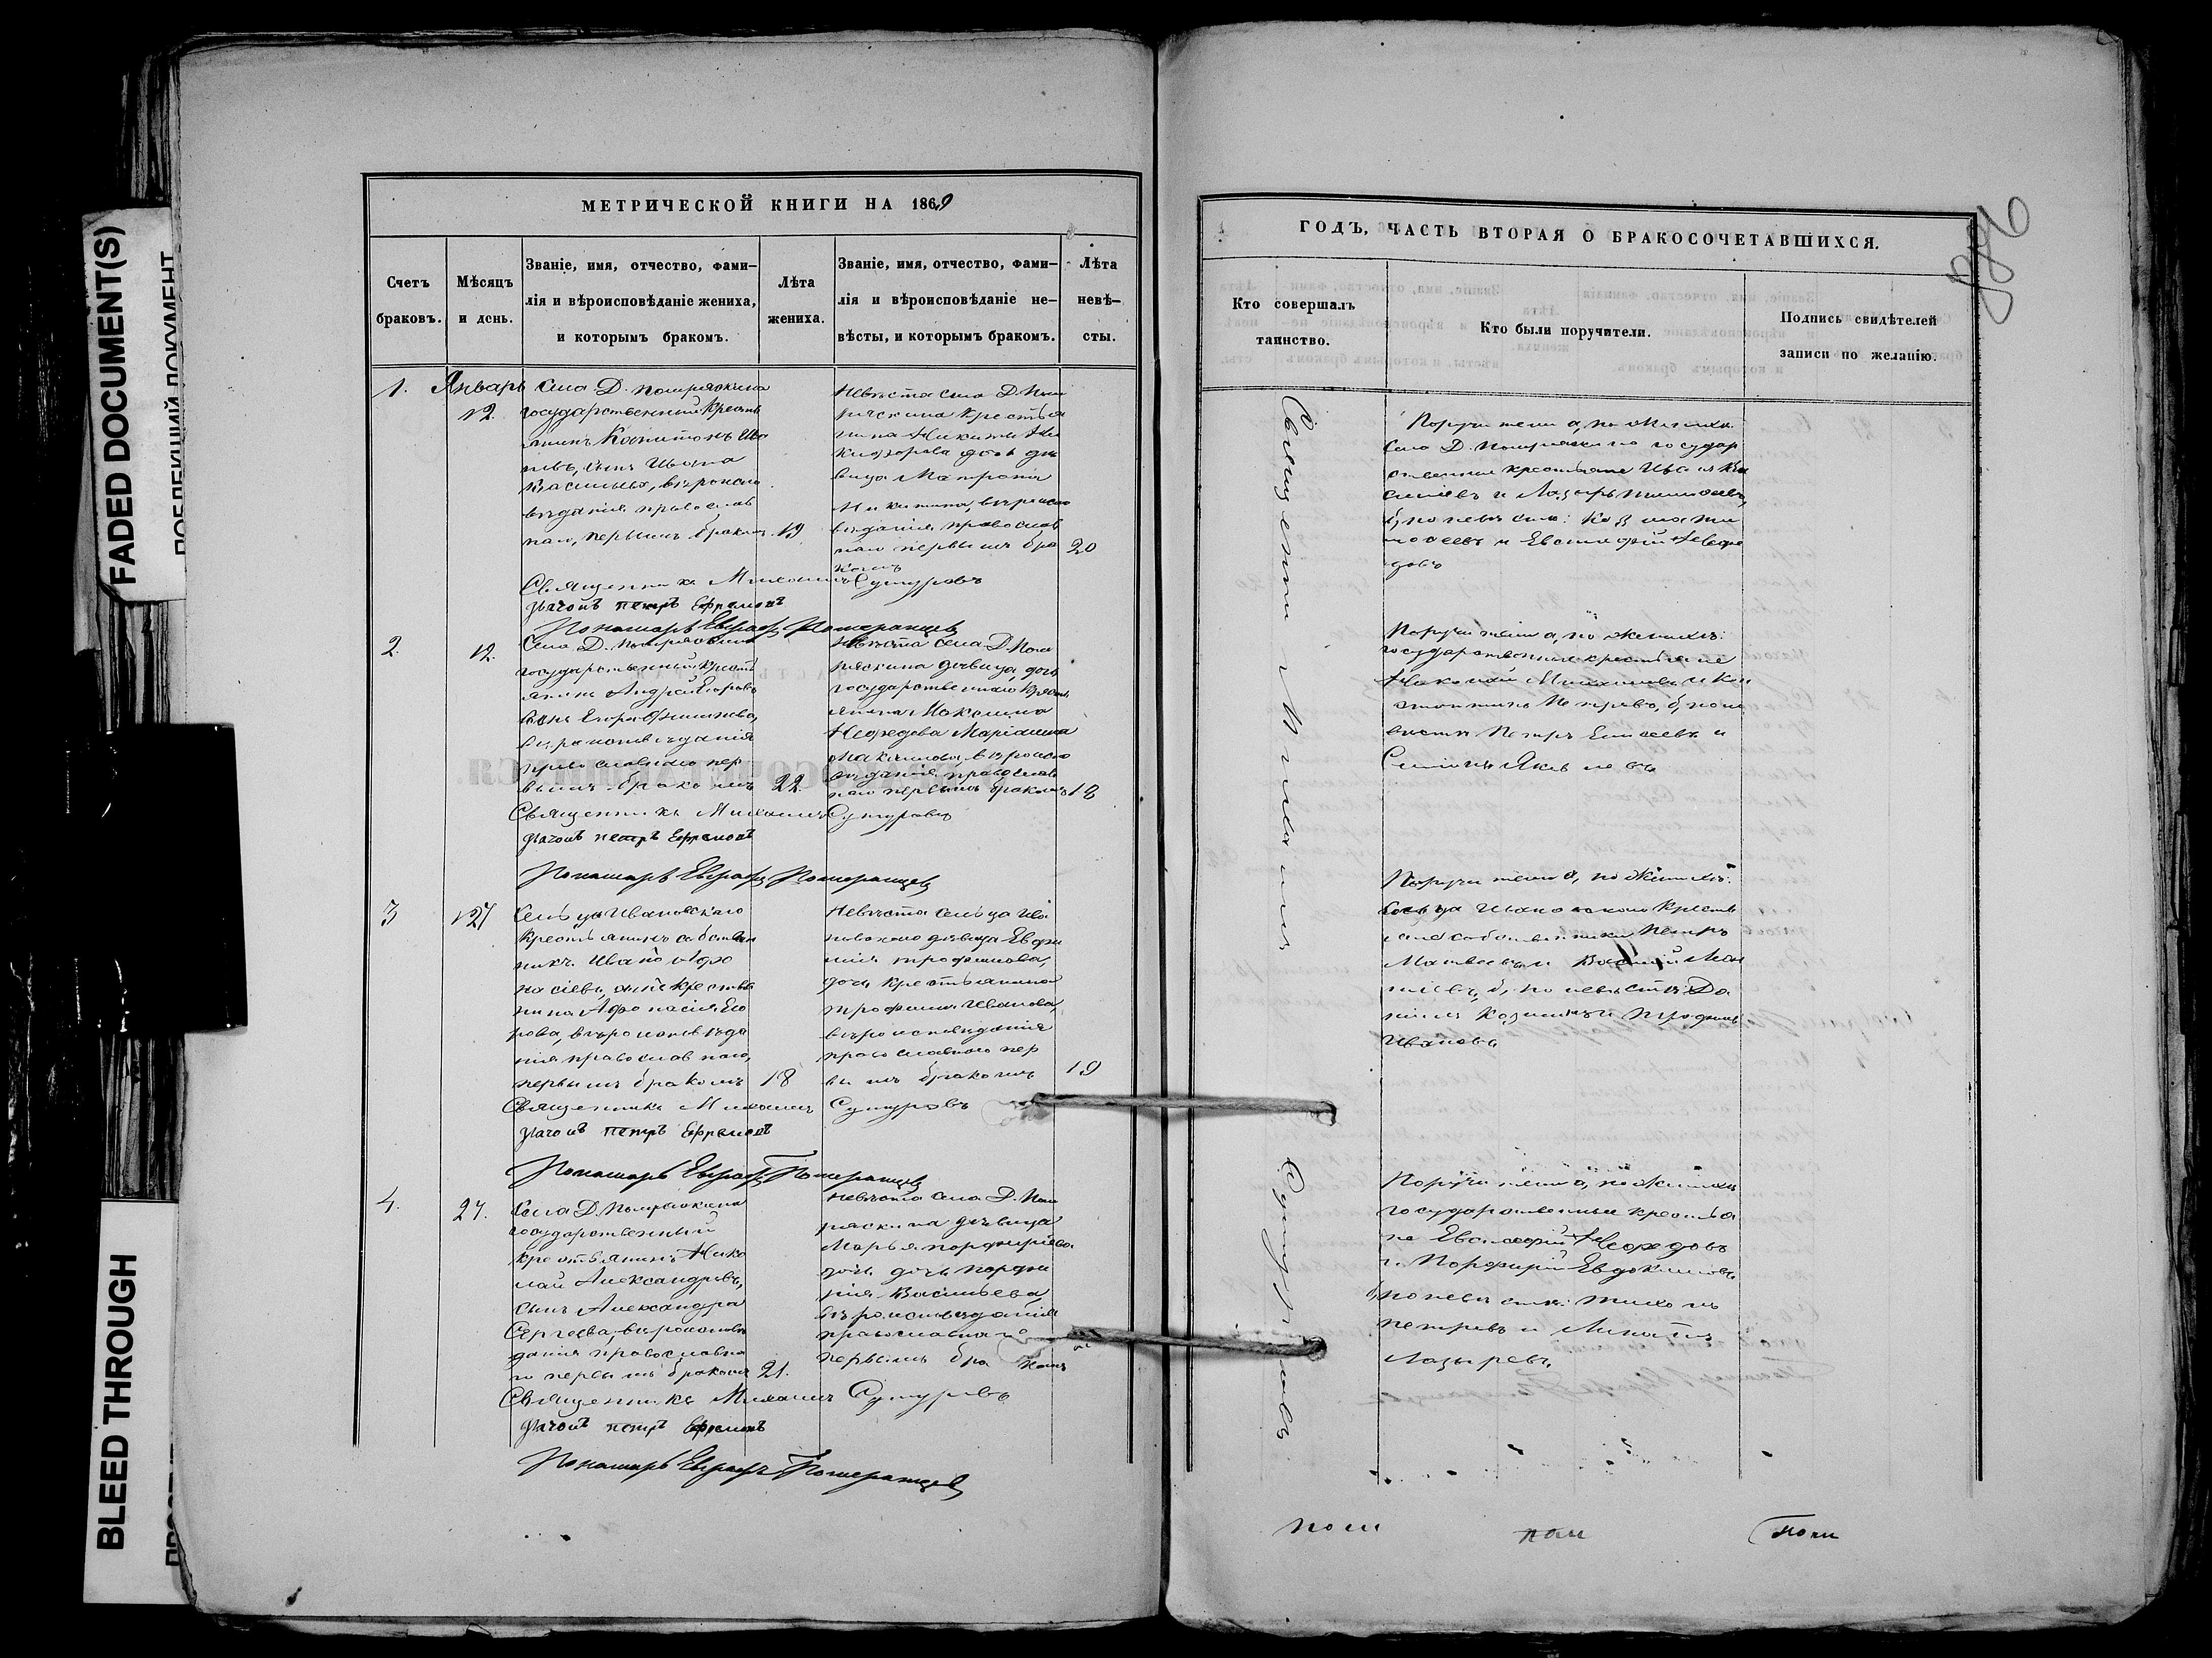 FADED DOCUMENT(S)
BLEED THROUGH
МЕТРИЧЕСКОЙ КНИГИ НА 1869
Счетъ
браковъ.
Мѣсяцъ
и день.
Званіе, имя, отчество, фами-
лія и вѣроисповѣданіе жениха,
и которымъ бракомъ.
Лѣта
жениха.
Званіе, имя, отчество, фами-
лія и вѣроисповѣданіе не-
вѣсты, и которымъ бракомъ.
Лѣта
невѣ-
сты.
1.
Январь
12.
Села Д.
государственный крестья
янинъ Капитонъ Ива
новъ, сынъ Ивана
Васильева, вѣроиспо
вѣданія православ
наго, первымъ бракомъ
19
Невѣста села Д.
крестья
нина Никиты Ни
кифорова дочь дѣ
вица Матрона
Никитина, вѣроиспо
вѣданія православ
наго первымъ бра
комъ
20
Священникъ Михаилъ Сутуровъ
Діаконъ петръ Ефремовъ
Пономарь Евграфъ Померанцевъ
2.
12.
Села Д.
государственный крестья
янинъ Андрей Егоровъ
сынъ Егора
вѣроисповѣданія
православнаго пер
вымъ бракомъ
22
Невѣста села Д.
дѣвица, дочь
государственнаго крестья
янина Максима
Нефедова Маріамна
Максимова, вѣроиспо
вѣданія православ
наго первымъ бракомъ
18
Священникъ Михаилъ Сутуровъ
Діаконъ петръ Ефремовъ
Пономарь Евграфъ Померанцевъ
3
27
Сельца Ивановскаго
крестьянинъ собствен
никъ Иванъ Афо
насіевъ, сынъ крестья
нина Афонасія Его
рова, вѣроисповѣда
нія православнаго,
первымъ бракомъ
18
Невѣста сельца Ива
новскаго дѣвица Евфи
мія трофимова,
дочь крестьянина
трофима Иванова,
вѣроисповѣданія
православнаго пер
вымъ бракомъ
19
Священникъ Михаилъ Сутуровъ
Діаконъ петръ Ефремовъ
Пономарь Евграфъ Померанцевъ
4.
27.
Села Д.
государственный
крестьянинъ Нико
лай Александровъ,
сынъ Александра
Сергѣева, вѣроисповѣ
данія православна
го первымъ бракомъ
21.
Невѣста села Д.
дѣвица
Марья порфирьева
дочь дочь порфи
рія Васильева,
вѣроисповѣданія
православнаго
первымъ бракомъ
Священникъ Михаилъ Сутуровъ
Діаконъ петръ Ефремовъ
Пономарь Евграфъ Померанцевъ
ГОДЪ, ЧАСТЬ ВТОРАЯ О БРАКОСОЧЕТАВШИХСЯ.
Кто совершалъ
таинство.
Кто были поручители.
Подпись свидѣтелей
записи по желанію.
Священникъ Михаилъ Сутуровъ
Поручители а, по женихѣ
села Д. государ
ственные крестьяне
и Лазарь тимофеевъ,
б, по невѣстѣ: Козма ти
мофеевъ и Евстафій Нефе
довъ
Поручители а, по женихѣ:
государственные крестьяне
Николай и Кон
стантинъ Петровъ, б, по не
вѣстѣ Петръ Елисеевъ и
Симонъ Яковлевъ
Поручители а, по женихѣ:
сельца Ивановскаго крестья
яне собственники Петръ
Матвеевъ и Василій
б, по невѣстѣ Да
нилъ Козминъ и трофимъ
Ивановъ
Поручители а, по женихѣ
государственные крестья
не Евстафій Нефедовъ
и Порфирій Евдокимовъ,
б, по невѣстѣ: тихонъ
петровъ и
Лазыревъ